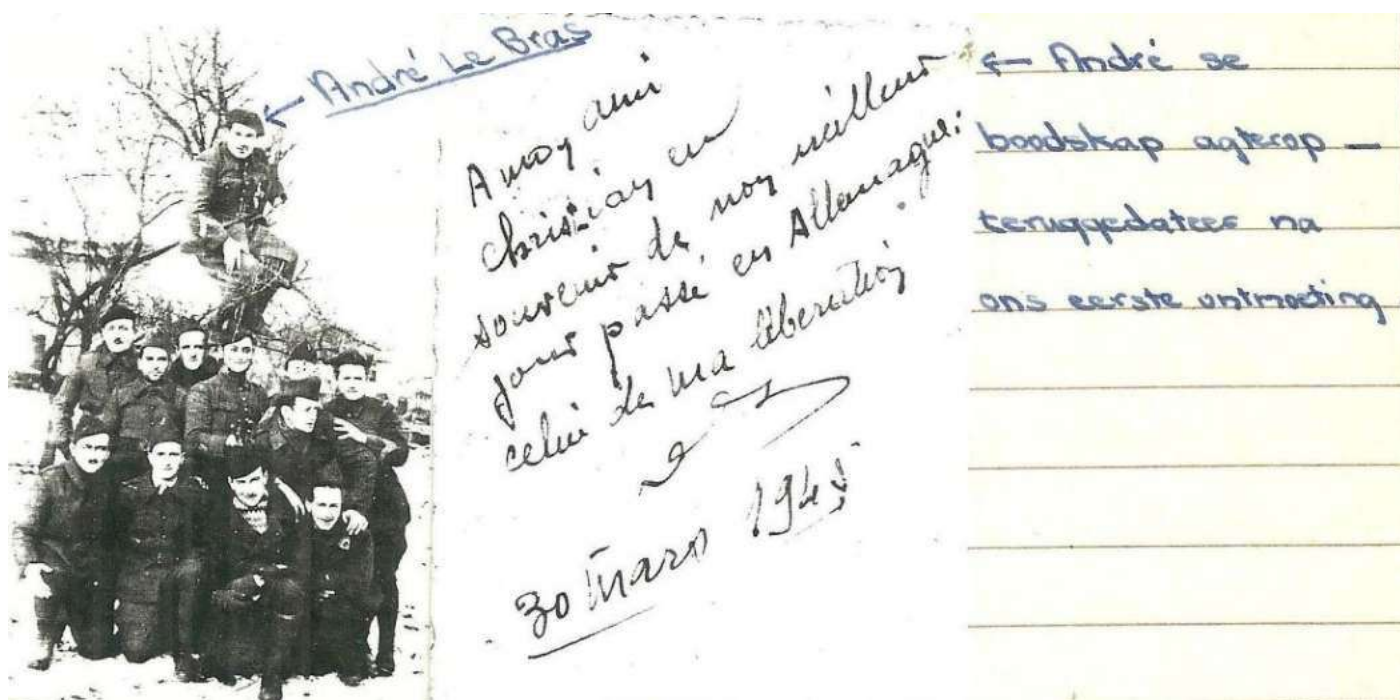 ← André Le Bras
A mon ami
christian en
souvenir de mon meilleur
jour passé en Allemagne:
celui de ma libération
30 Mars 1945
← André se
boodskap agterop —
teruggedateer na
ons eerste ontmoeting